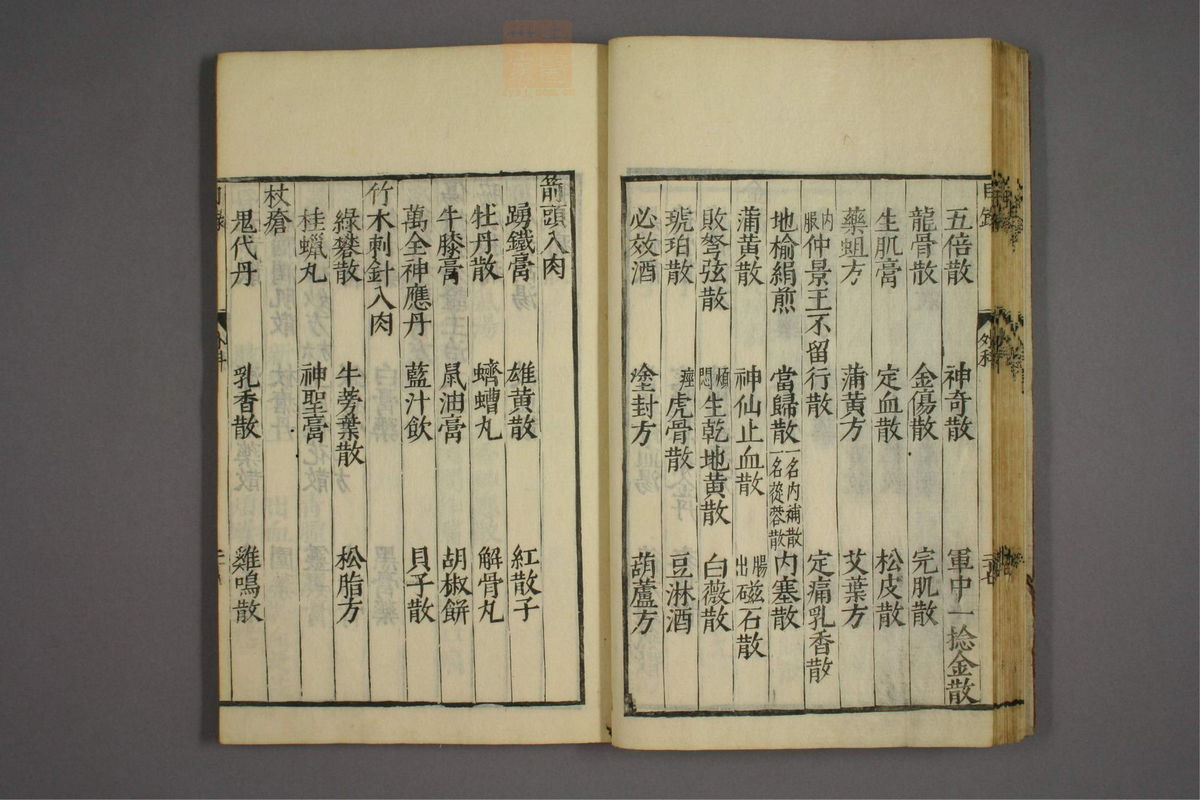 五倍散 神奇散 軍中一捻金散
龍骨散 金傷散 完肌散
生肌膏 定血散 松皮散
藥蛆方 蒲黄方 艾葉方
内服仲景王不留行散 定痛乳香散
地榆絹煎 當歸散一名内補散一名蓯蓉散 内塞散
蒲黄散 神仙止血散 腸出磁石散
敗弩弦散 煩悶生乾地黄散 白薇散
琥珀散 虎骨散 豆淋酒
必效酒 塗封方 葫蘆方
目錄 外科
箭頭入肉
踴鐵膏 雄黄散 紅散子
牡丹散 蠐螬丸 解骨丸
牛膝膏 鼠油膏 胡椒餅
萬全神應丹 藍汁飲 貝子散
竹木刺針入肉
綠礬散 牛蒡葉散 松脂方
桂蝋丸 神聖膏
杖瘡
鬼代丹 乳香散 雞鳴散